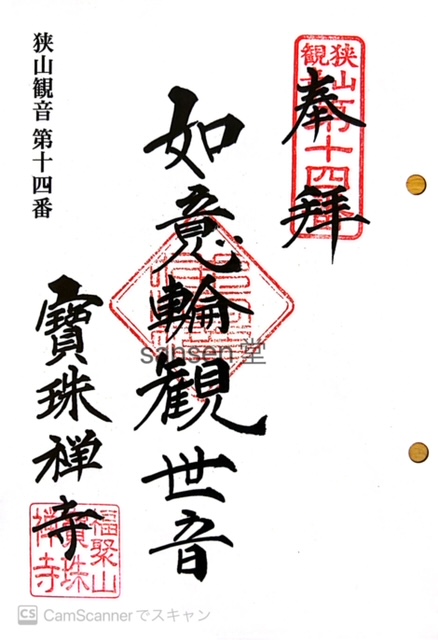 狭山観音 第十四番
奉拝
如意輪観世音
sansen 堂
寶珠禅寺
福聚山
寶珠
禅寺
CS CamScannerでスキャン